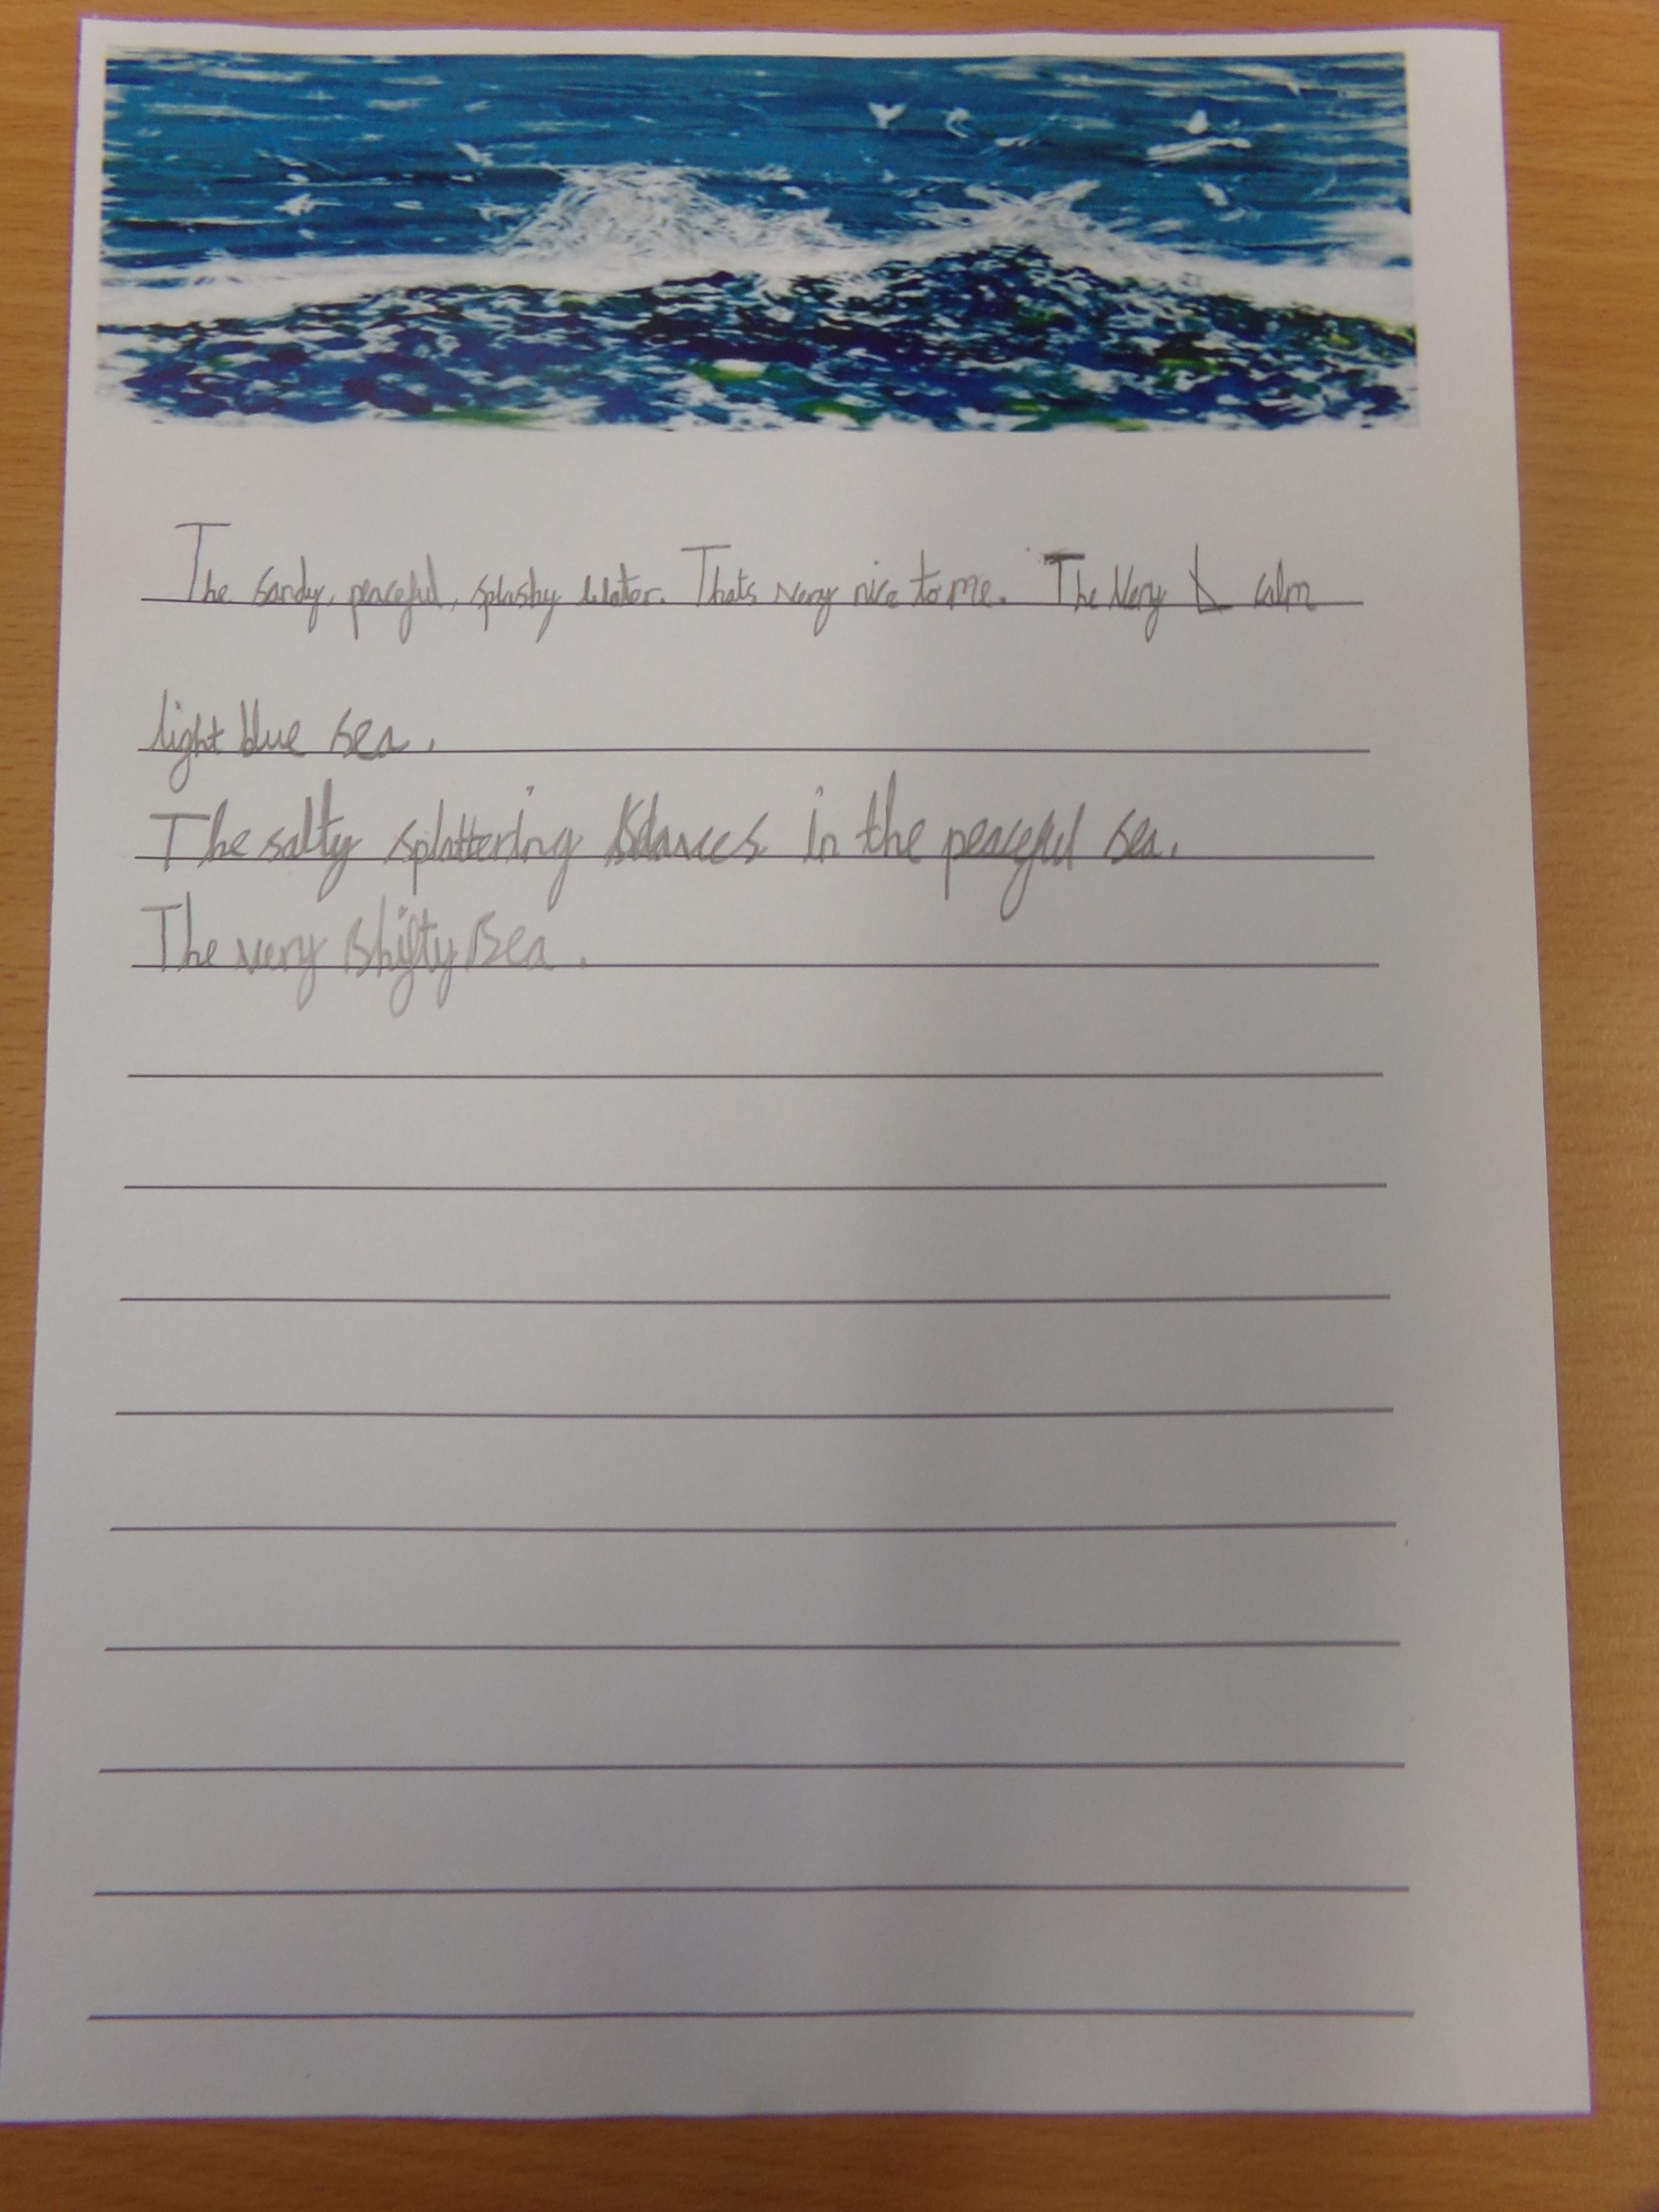 The sandy, peaceful, splashy water. Thats very nice to me. The very calm
light blue sea.
The salty splattering dances in the peaceful sea.
The very shifty sea.